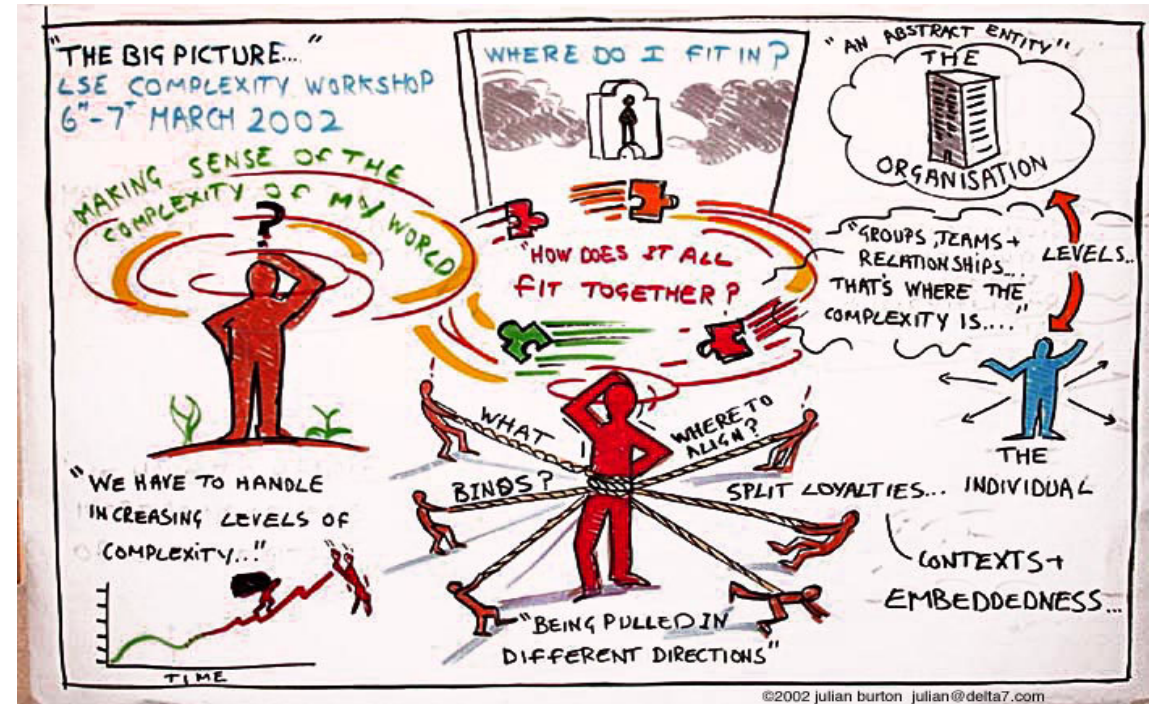 "THE BIG PICTURE..."
LSE COMPLEXITY WORKSHOP
6TH-7TH MARCH 2002
MAKING SENSE OF THE
COMPLEXITY OF MY WORLD
?
"WE HAVE TO HANDLE
INCREASING LEVELS OF
COMPLEXITY..."
TIME
WHERE DO I FIT IN?
"HOW DOES IT ALL
FIT TOGETHER?
WHAT
BINDS?
WHERE TO
ALIGN?
SPLIT LOYALTIES...
"BEING PULLED IN
DIFFERENT DIRECTIONS"
"AN ABSTRACT ENTITY"
THE
ORGANISATION
"GROUPS, TEAMS +
RELATIONSHIPS...
THAT'S WHERE THE
COMPLEXITY IS...."
LEVELS..
THE
INDIVIDUAL
CONTEXTS +
EMBEDDEDNESS...
©2002 julian burton julian@delta7.com